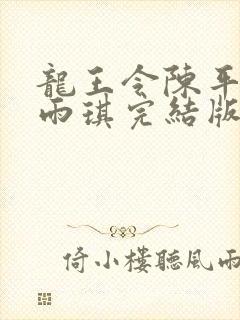 龍王令陳平
雨琪完結版
倚小樓聽風雨